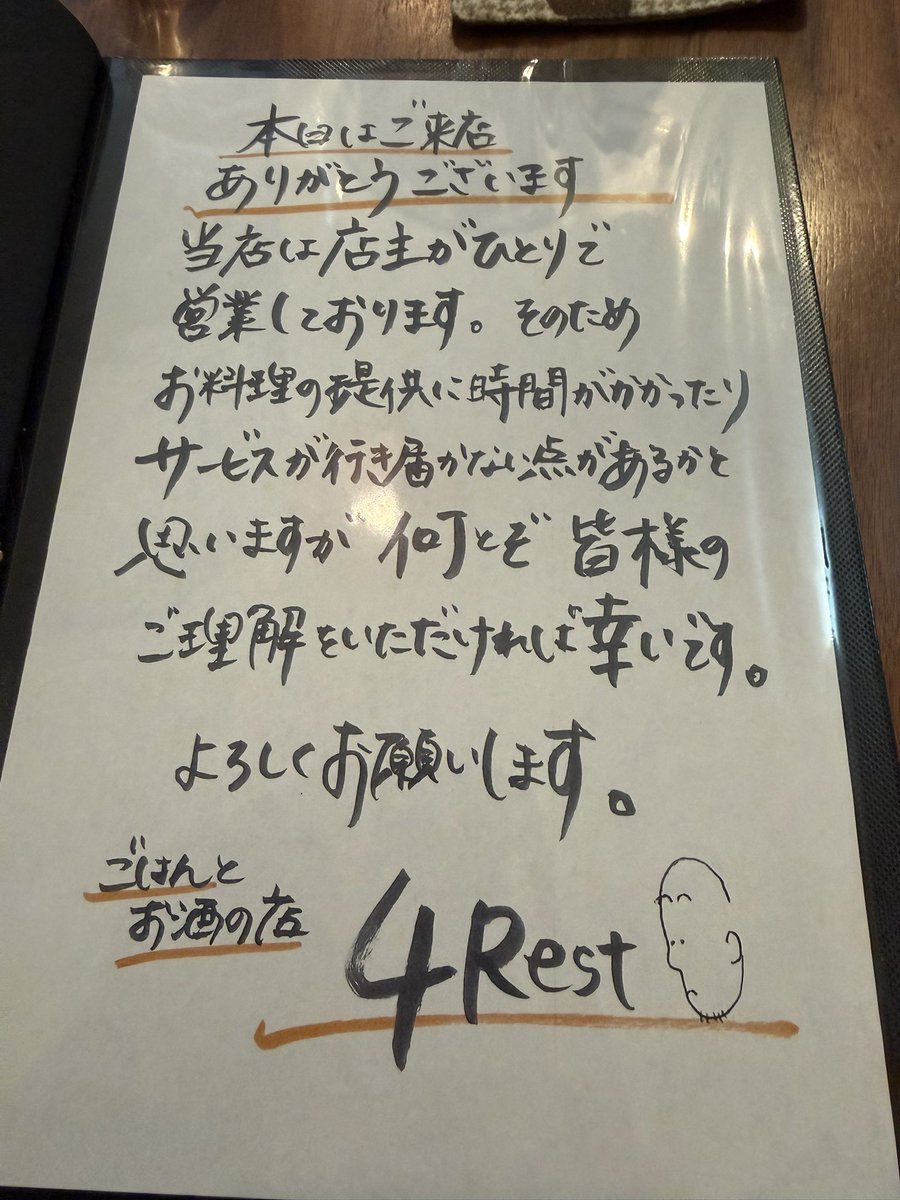 本日はご来店
ありがとうございます
当店は店主がひとりで
営業しております。そのため
お料理の提供に時間がかかったり
サービスが行き届かない点があるかと
思いますが 何とぞ 皆様の
ご理解をいただければ幸いです。
よろしくお願いします。
ごはんと
お酒の店
4Rest